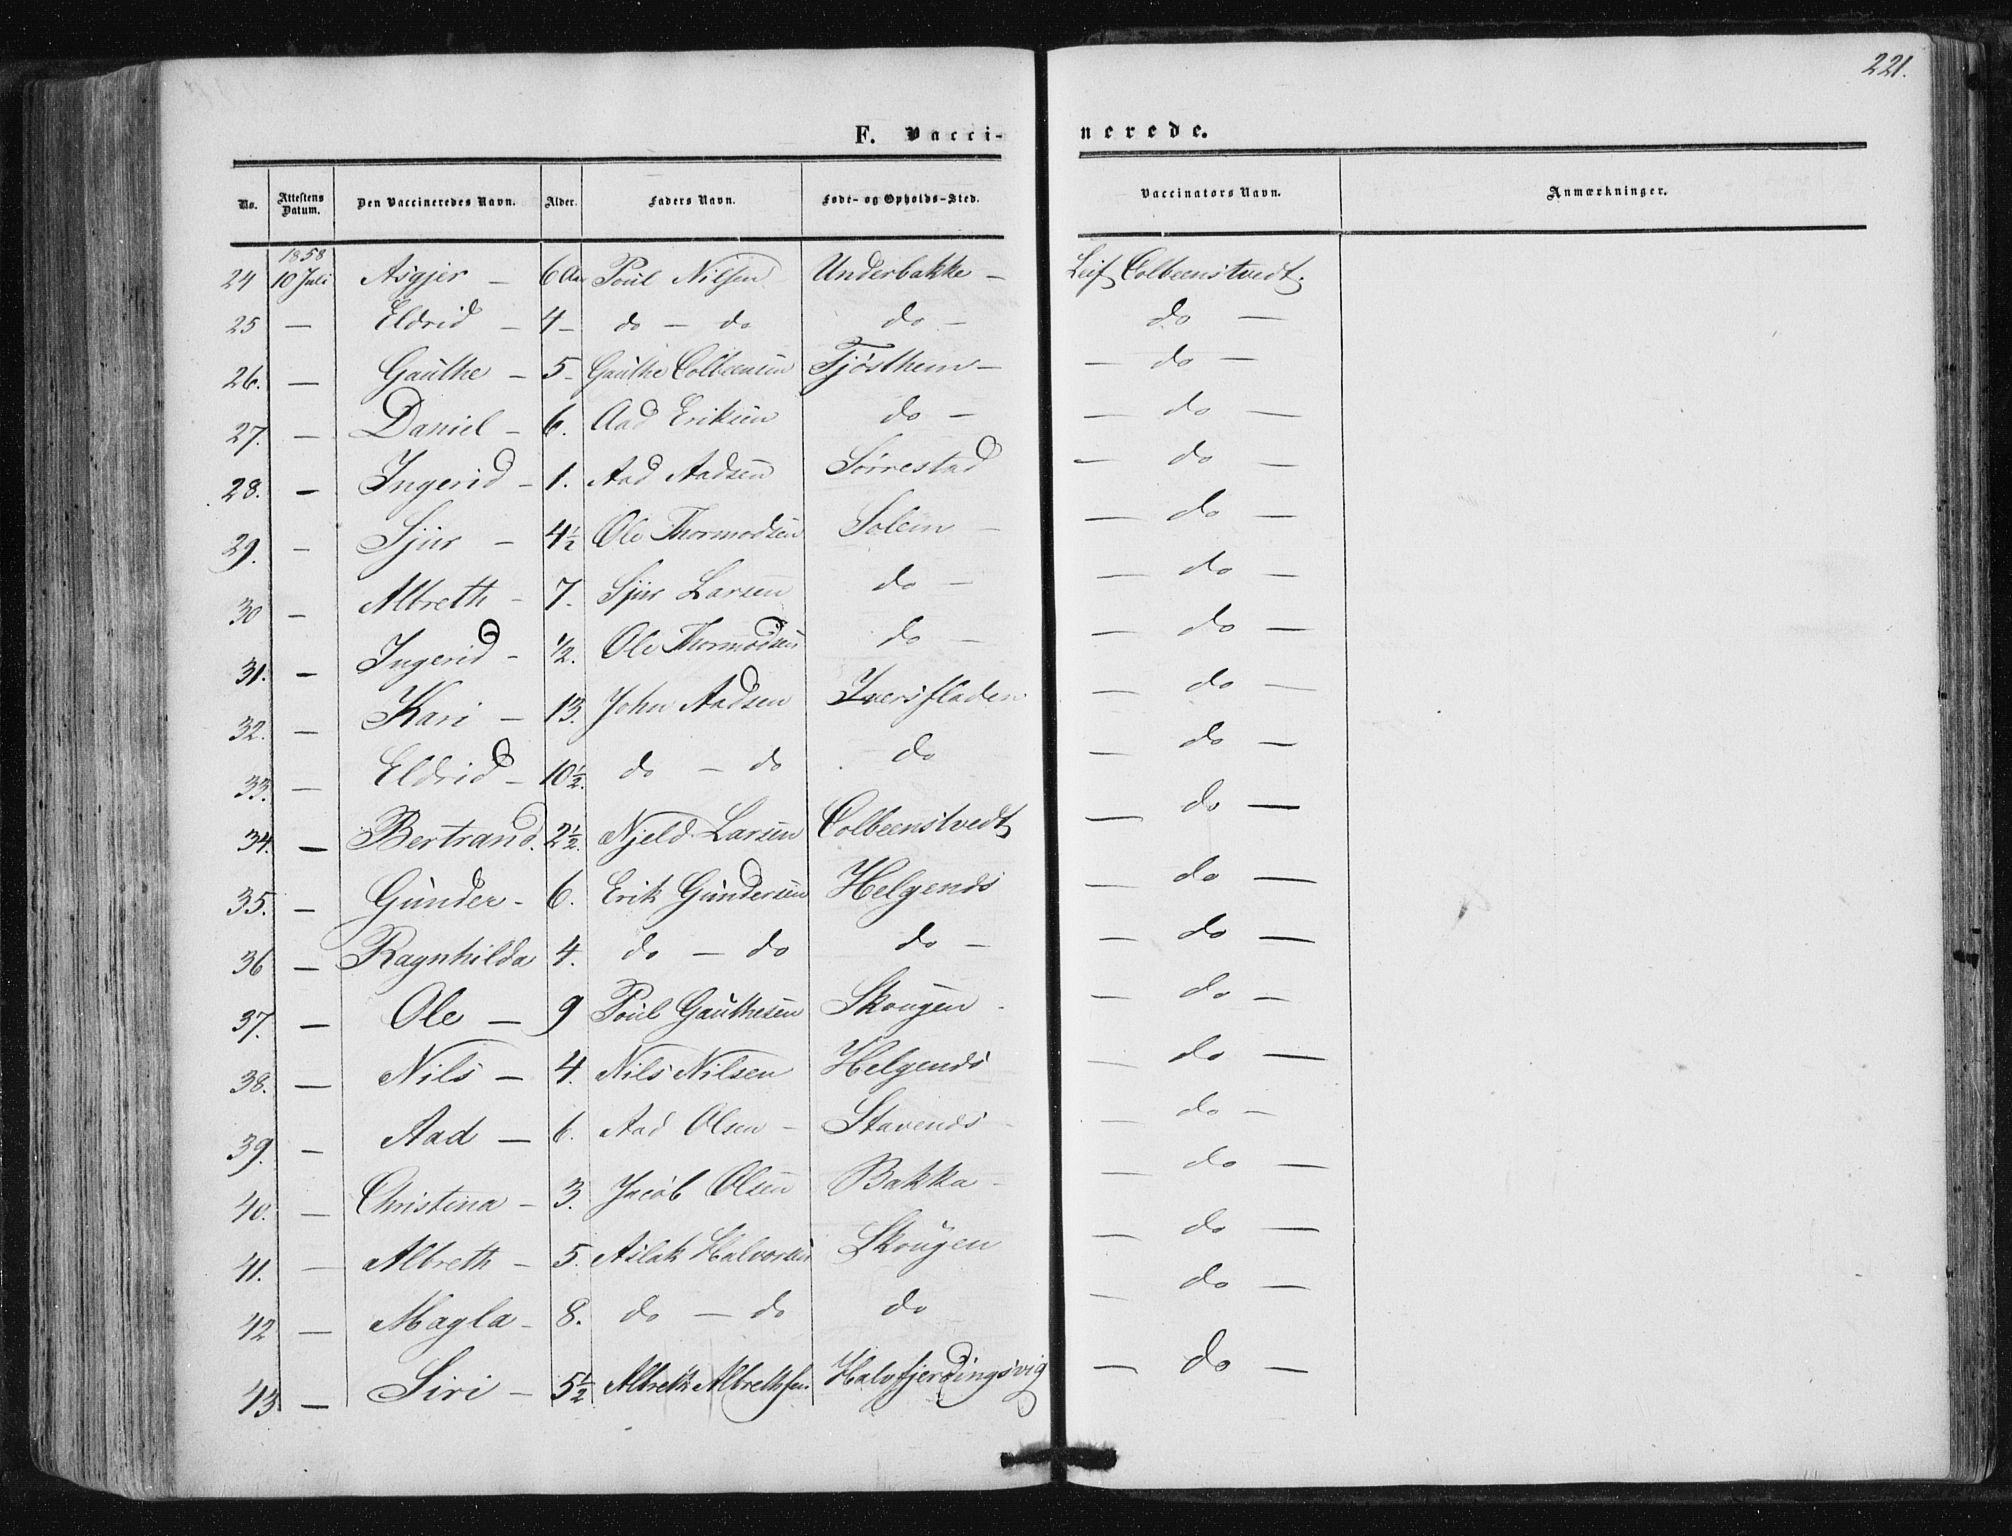 221.
F. Vaccinerede.
No. Attestens Datum. Den Vaccineredes Navn. Alder. Faders Navn. Føde- og Opholds-Sted. Vaccinators Navn. Anmærkninger.
1858
24 10 Juli Asgjer — 6 Aar Poul Nilsen Underbakke — Leif Colbeenstvedt.
25 — Eldrid — 4 — do — do do — do —
26. — Gauthe — 5 — Gauthe Colbeensen Tjøsthem — — do —
27. — Daniel — 6. Aad Eriksen do — — do —
28. — Ingerid — 1. Aad Aadsen Sørrestad — do —
29. — Sjur — 4½ Ole Thormodsen Solem — — do —
30 — Albreth — 7. Sjur Larsen do — — do —
31. — Ingerid — ½. Ole Thormodsen do — — do —
32. — Kari — 13. John Aadsen Iversfladen — do —
33. — Eldrid — 10½. do — do do — do —
34. — Bertrand. 2½. Njeld Larsen Colbeenstvedt — do —
35. — Gunder — 6. Erik Gundersen Helgends — do —
36 — Ragnhilda 4. do — do do — — do —
37. — Ole — 9 Poul Gauthesen Skougen — do —
38. — Nils — 4. Nils Nilsen Helgends — do —
39. — Aad — 6. Aad Olsen — Stavends — — do —
40. — Christina — 3. Jacob Olsen Bakka — — do —
41. — Albreth — 5. Aslak Halvorsen Skougen — do —
42 — Magla — 8. do — do do — do —
43 — Siri — 5½ Albreth Albrethsen Halvfjerdingsvig — do —